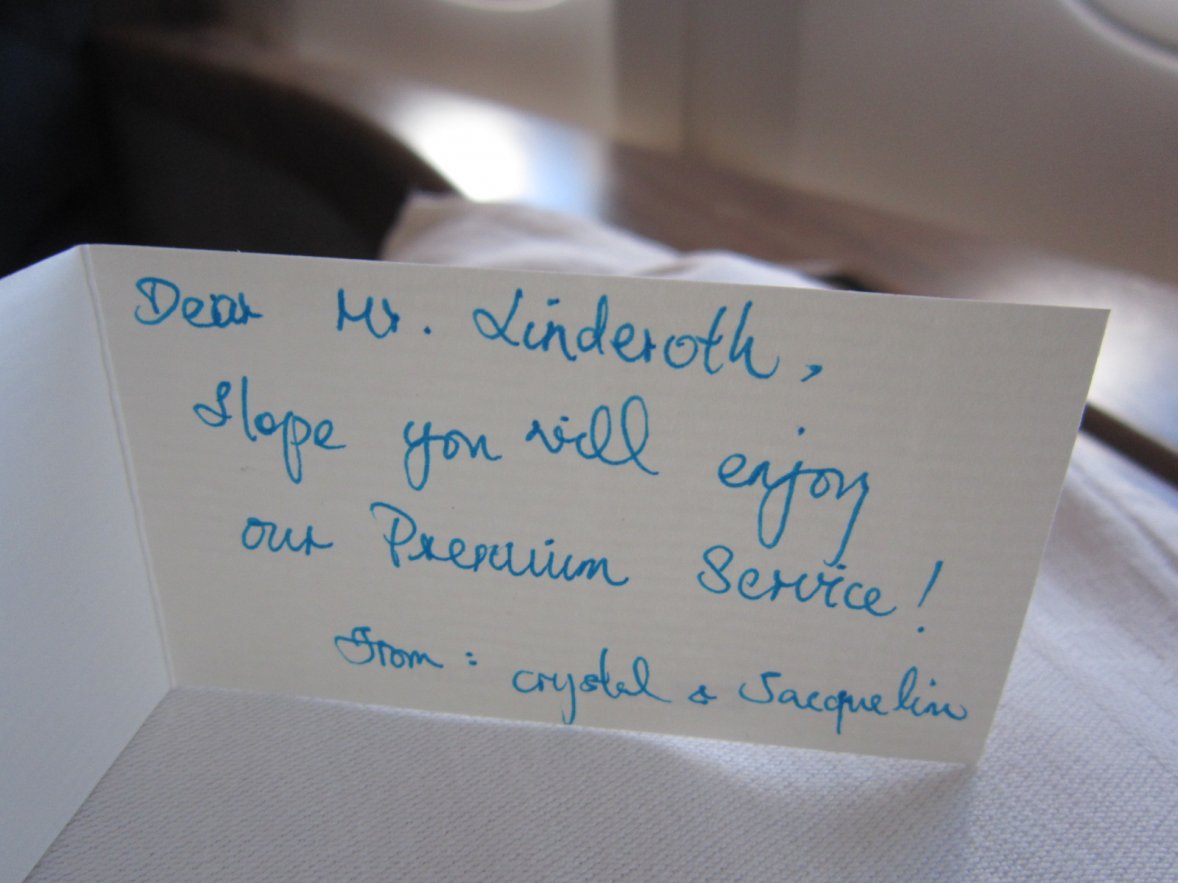 Dear Mr. Linderoth,
Hope you will enjoy
our Premium Service!
From: Crystal & Jacquelin